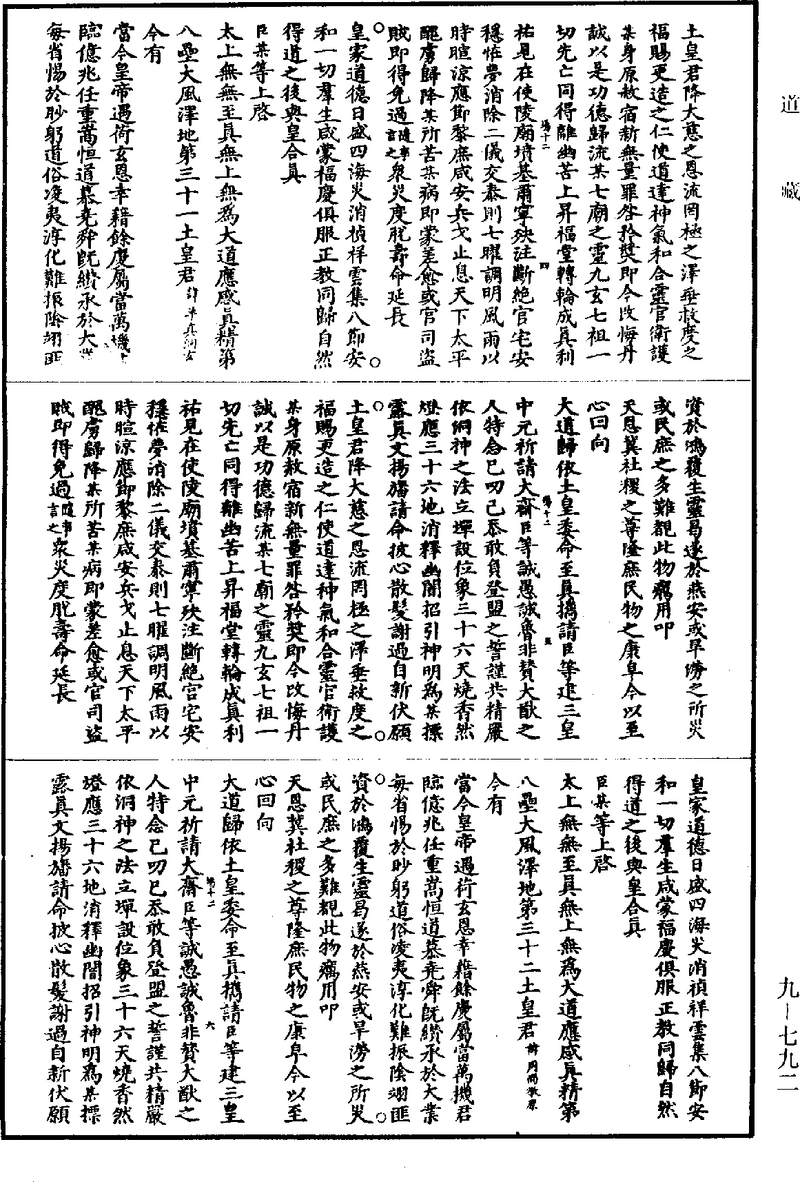 道藏
土皇君降大慈之恩流罔極之澤垂救度之
福賜更造之仁使道達神氣和合靈官衛護
某身原赦宿新無量罪咎矜奬即今改悔丹
誠以是功德歸流某七廟之靈九玄七祖一
切先亡同得離幽苦上昇福堂轉輪成真利
祐見在使陵廟墳墓爾寧殃注斷絕官宅安
穩恠夢消除二儀交泰則七曜調明風雨以
時暄涼應節黎庶咸安兵戈止息天下太平
醜虜歸降某所苦某病即蒙差愈或官司盜
賊即得免過隨事言之衆災度脫壽命延長
皇家道德日盛四海災消禎祥雲集八節安
和一切羣生咸蒙福慶俱服正教同歸自然
得道之後與皇合真
臣某等上啓
太上無無至真無上無爲大道應感真精第
八壘大風澤地第三十一土皇君
今有
當今皇帝遇荷玄恩幸藉餘慶屬當萬機
臨億兆任重嵩恒道慕堯舜旣纘承於大業
每省惕於眇躬道俗凌夷淳化難振陰翊匪
資於鴻覆生靈曷遂於燕安或旱澇之所災
或民庶之多難覩此物癘用叩
天恩冀社稷之尊隆庶民物之康阜今以至
心回向
大道歸依土皇委命至真携請臣等建三皇
中元祈請大齋臣等誠愚誠魯非贊大猷之
人特念已叨已忝敢負登盟之誓謹共精嚴
依洞神之法立壇設位象三十六天燒香然
燈應三十六地消釋幽闇招引神明爲某標
露真文揚旛請命披心散髮謝過自新伏願
土皇君降大慈之恩流罔極之澤垂救度之
福賜更造之仁使道達神氣和合靈官衛護
某身原赦宿新無量罪咎矜奬即今改悔丹
誠以是功德歸流某七廟之靈九玄七祖一
切先亡同得離幽苦上昇福堂轉輪成真利
祐見在使陵廟墳墓爾寧殃注斷絕官宅安
穩恠夢消除二儀交泰則七曜調明風雨以
時暄涼應節黎庶咸安兵戈止息天下太平
醜虜歸降某所苦某病即蒙差愈或官司盜
賊即得免過隨事言之衆災度脫壽命延長
皇家道德日盛四海災消禎祥雲集八節安
和一切羣生咸蒙福慶俱服正教同歸自然
得道之後與皇合真
臣某等上啓
太上無無至真無上無爲大道應感真精第
八壘大風澤地第三十二土皇君
今有
當今皇帝遇荷玄恩幸藉餘慶屬當萬機君
臨億兆任重嵩恒道慕堯舜旣纘承於大業
每省惕於眇躬道俗凌夷淳化難振陰翊匪
資於鴻覆生靈曷遂於燕安或旱澇之所災
或民庶之多難覩此物癘用叩
天恩冀社稷之尊隆庶民物之康阜今以至
心回向
大道歸依土皇委命至真携請臣等建三皇
中元祈請大齋臣等誠愚誠魯非贊大猷之
人特念已叨已忝敢負登盟之誓謹共精嚴
依洞神之法立壇設位象三十六天燒香然
燈應三十六地消釋幽闇招引神明爲某標
露真文揚旛請命披心散髮謝過自新伏願
九-七九二